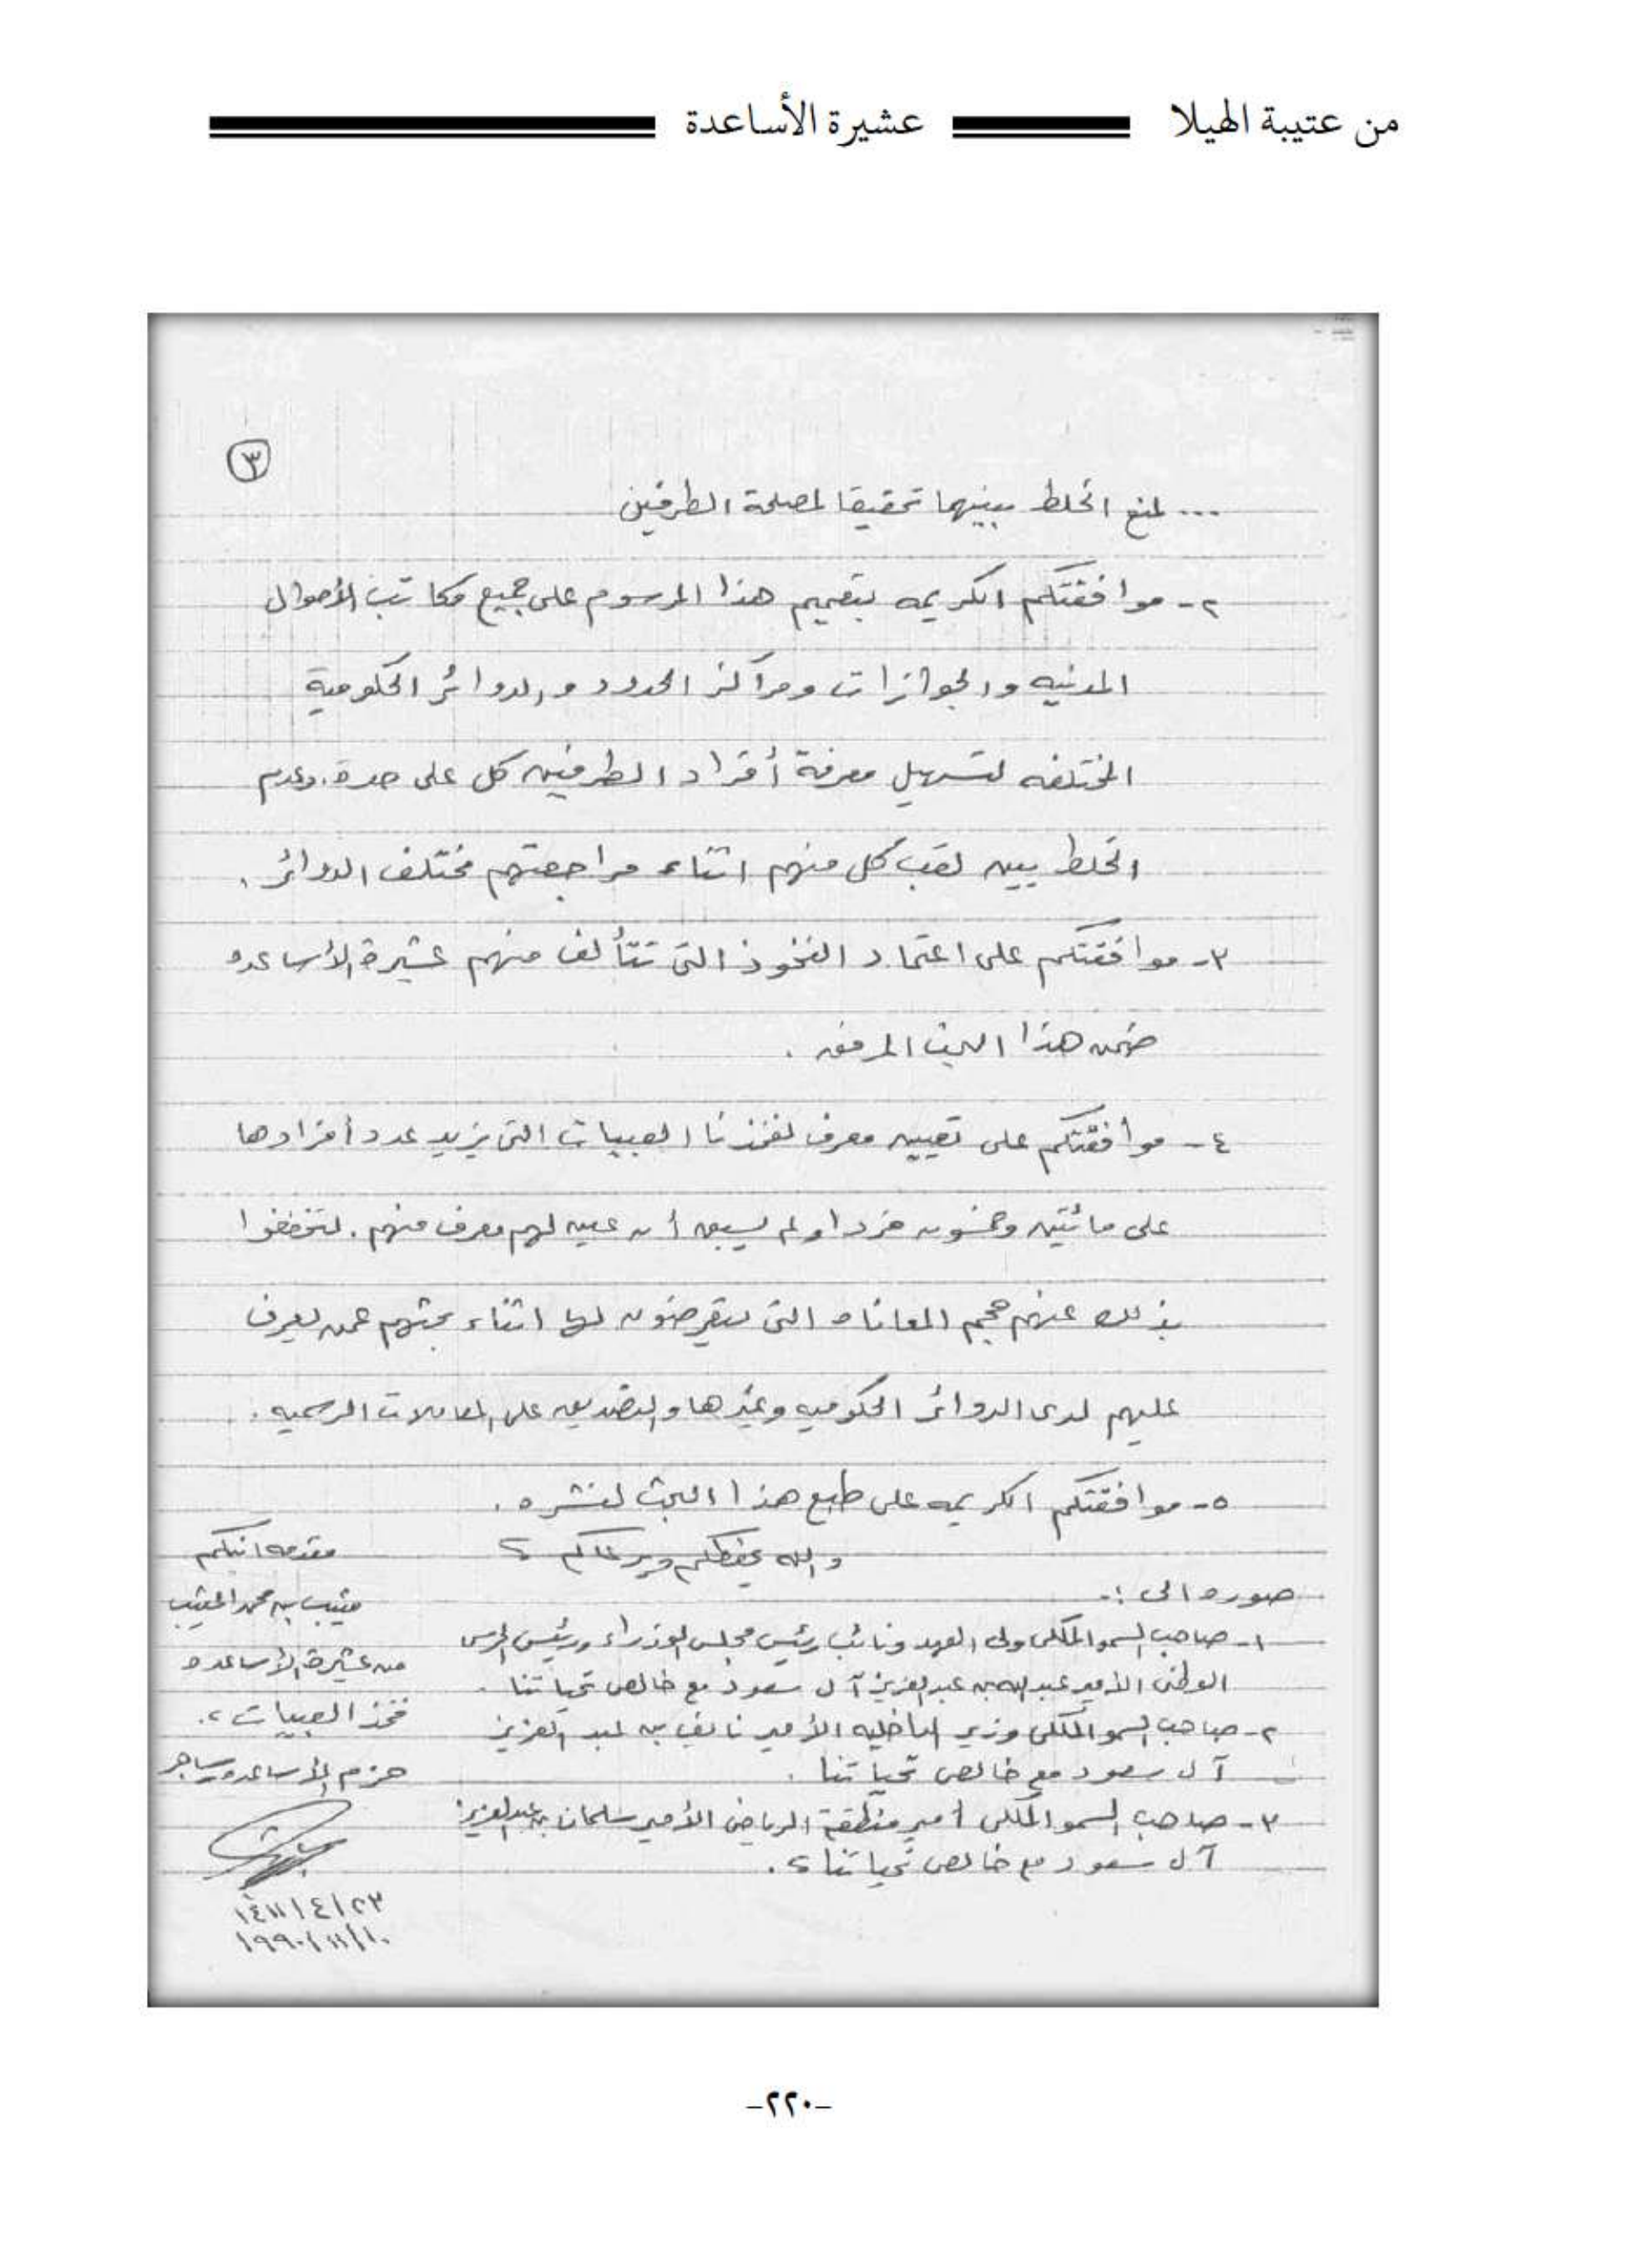 من عتيبة الهيلا عشيرة الأساعدة
٣
... لمنع الخلط بينهما تحقيقا لمصلحة الطرفين
٢- موافقتكم الكريمه بتعميم هذا المرسوم على جميع مكاتب الأحوال
المدنيه والجوازات ومراكز الحدود والدوائر الحكومية
المختلفه لتسهيل معرفة أفراد الطرفين كل على حدة. وعدم
الخلط بين لقب كل منهم اثناء مراجعتهم مختلف الدوائر.
٣- موافقتكم على اعتماد الفخوذ التي تتألف منهم عشيرة الأساعده
ضمن هذا البحث المرفق.
٤- موافقتكم على تعيين معرف لفخذنا العبيات التي يزيد عدد أفرادها
على مائتين وخمسون فردا ولم يسبق أن عين لهم معرف منهم. لتخففوا
بذلك عنهم حجم المعاناه التي يتعرضون لها اثناء بحثهم عمن يعرف
عليهم لدى الدوائر الحكوميه وغيرها والتصديق على المعاملات الرسميه.
٥- موافقتكم الكريمه على طبع هذا البحث لنشره.
والله يحفظكم ويرعاكم
صوره الى :-
١- صاحب السمو الملكي ولي العهد ونائب رئيس مجلس الوزراء ورئيس الحرس
الوطني الأمير عبدالله بن عبدالعزيز آل سعود مع خالص تحياتنا.
٢- صاحب السمو الملكي وزير الداخليه الأمير نايف بن عبد العزيز
آل سعود مع خالص تحياتنا.
٣- صاحب السمو الملكي أمير منطقة الرياض الأمير سلمان بن عبدالعزيز
آل سعود مع خالص تحياتنا.
مقدمه اليكم
بن محمد
من عشيرة الأساعده
فخذ العبيات
حزم الأساعده وساجر
١٤١١/٤/٢٣
١٩٩٠/١١/١٠
-٢٢٠-